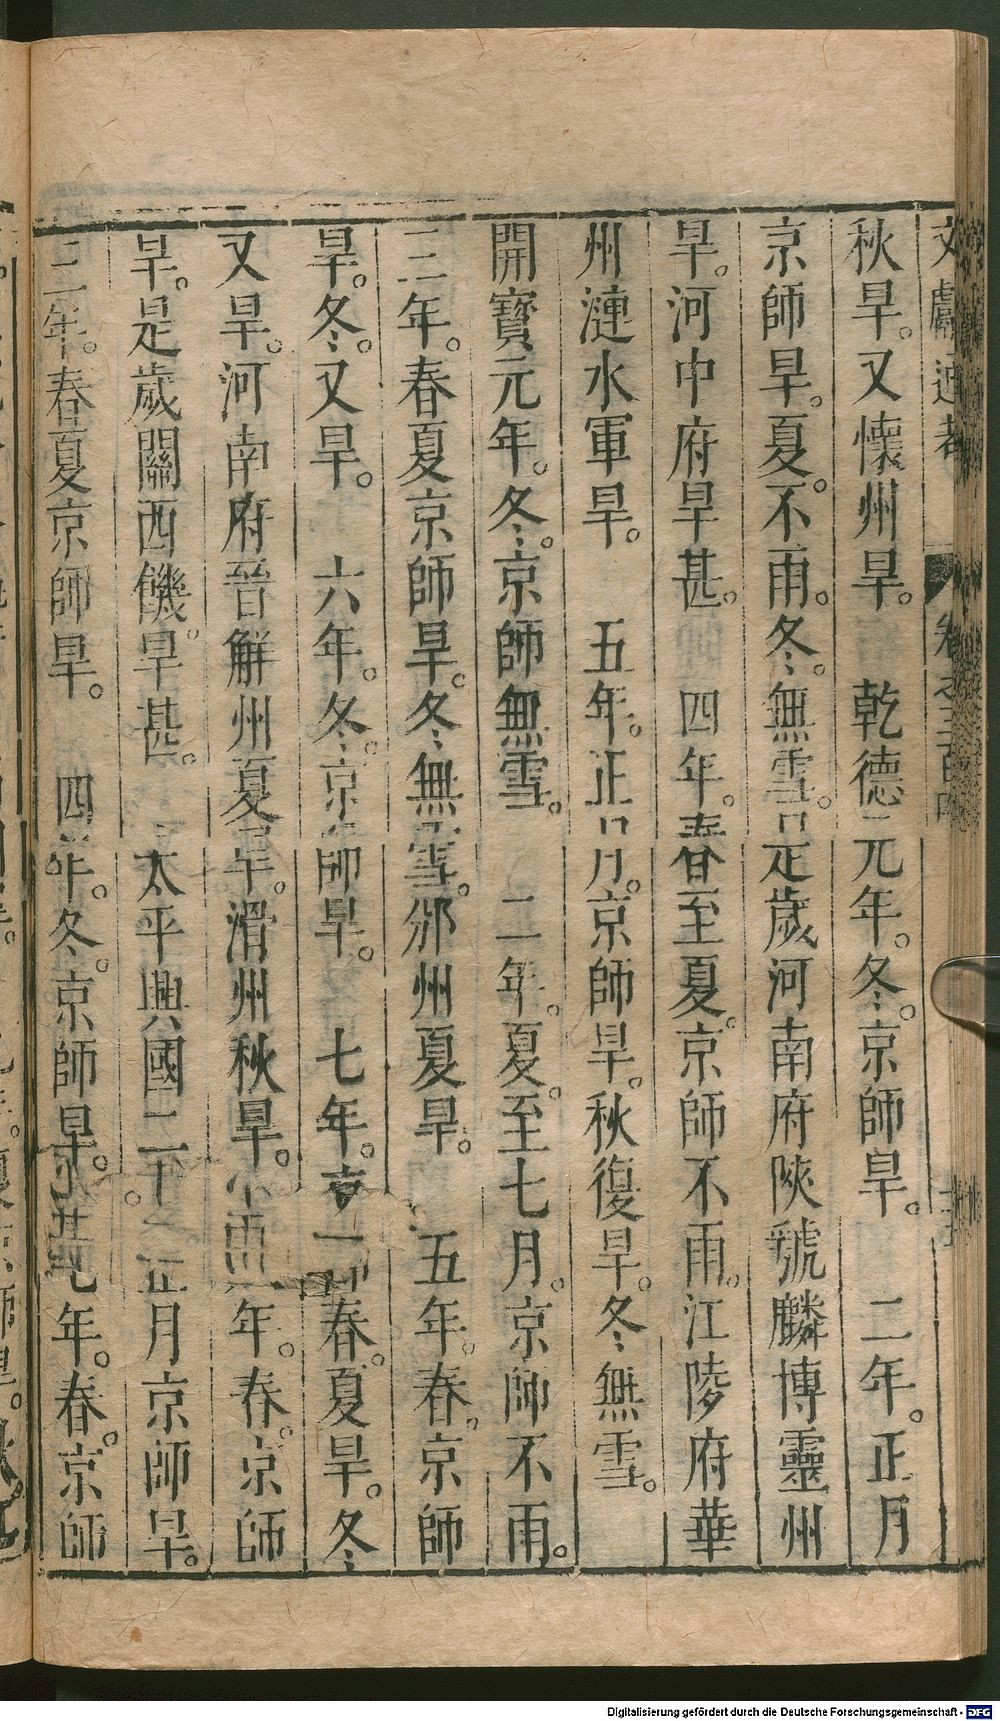 文獻通考 卷之三百四
秋旱。又懷州旱。　乾德元年。冬。京師旱。　二年。正月
京師旱。夏。不雨。冬。無雪。是歲河南府陝號麟博靈州
旱。河中府旱甚。　四年。春至夏。京師不雨。江陵府華
州漣水軍旱。　五年。正月。京師旱。秋復旱。冬無雪。
開寶元年。冬。京師無雪。　二年。夏。至七月。京師不雨。
三年。春夏京師旱。冬無雪。邠州夏旱。　五年。春。京師
旱。冬。又旱。　六年。冬。京師旱。　七年。京師春。夏旱。冬
又旱。河南府晉解州夏旱。滑州秋旱。年。春。京師
旱。是歲關西饑。旱甚。　太平興國二年正月京師旱。
三年。春夏京師旱。　四年。冬。京師旱。七年。春。京師
Digitalisierung gefördert durch die Deutsche Forschungsgemeinschaft - DFG